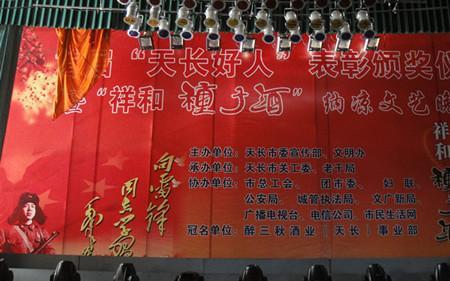 届 “天长好人” 表彰颁奖仪
暨 “祥和 種子酒” 纳凉文艺晚
祥和 種子
向雷锋
同志学习
毛泽东
主办单位：天长市委宣传部、文明办
承办单位：天长市关工委、老干局
协办单位：市总工会、 团市委、 妇 联、
公安局、 城管执法局、 文广新局、
广播电视台、电信公司、市民生活网
冠名单位：醉三秋酒业（天长）事业部